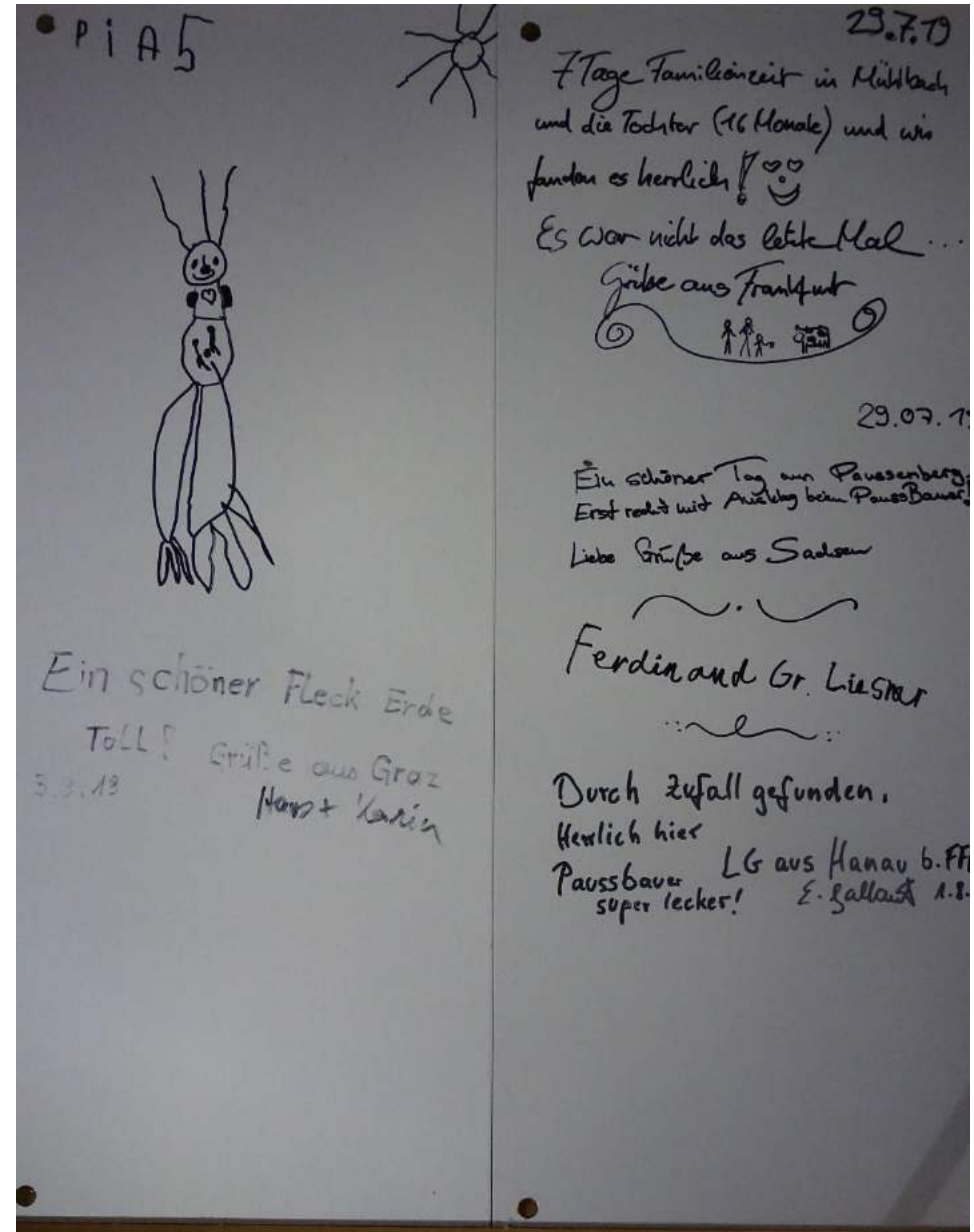 PiA 5
Ein schöner Fleck Erde
Toll! Grüße aus Graz
3.9.19
Karin
29.7.19
7 Tage Familienzeit in Mühlbach
und die Tochter (16 Monate) und wir
fanden es herrlich!
Es war nicht das letzte Mal ...
Grüße aus Frankfurt
29.07.19
Ein schöner Tag am Paussenberg.
Erst recht mit beim PaussBauer!
Liebe Grüße aus Sachsen
Ferdinand Gr.
Durch Zufall gefunden.
Herrlich hier
Paussbauer LG aus Hanau b. FF
super lecker! E. 1.8.